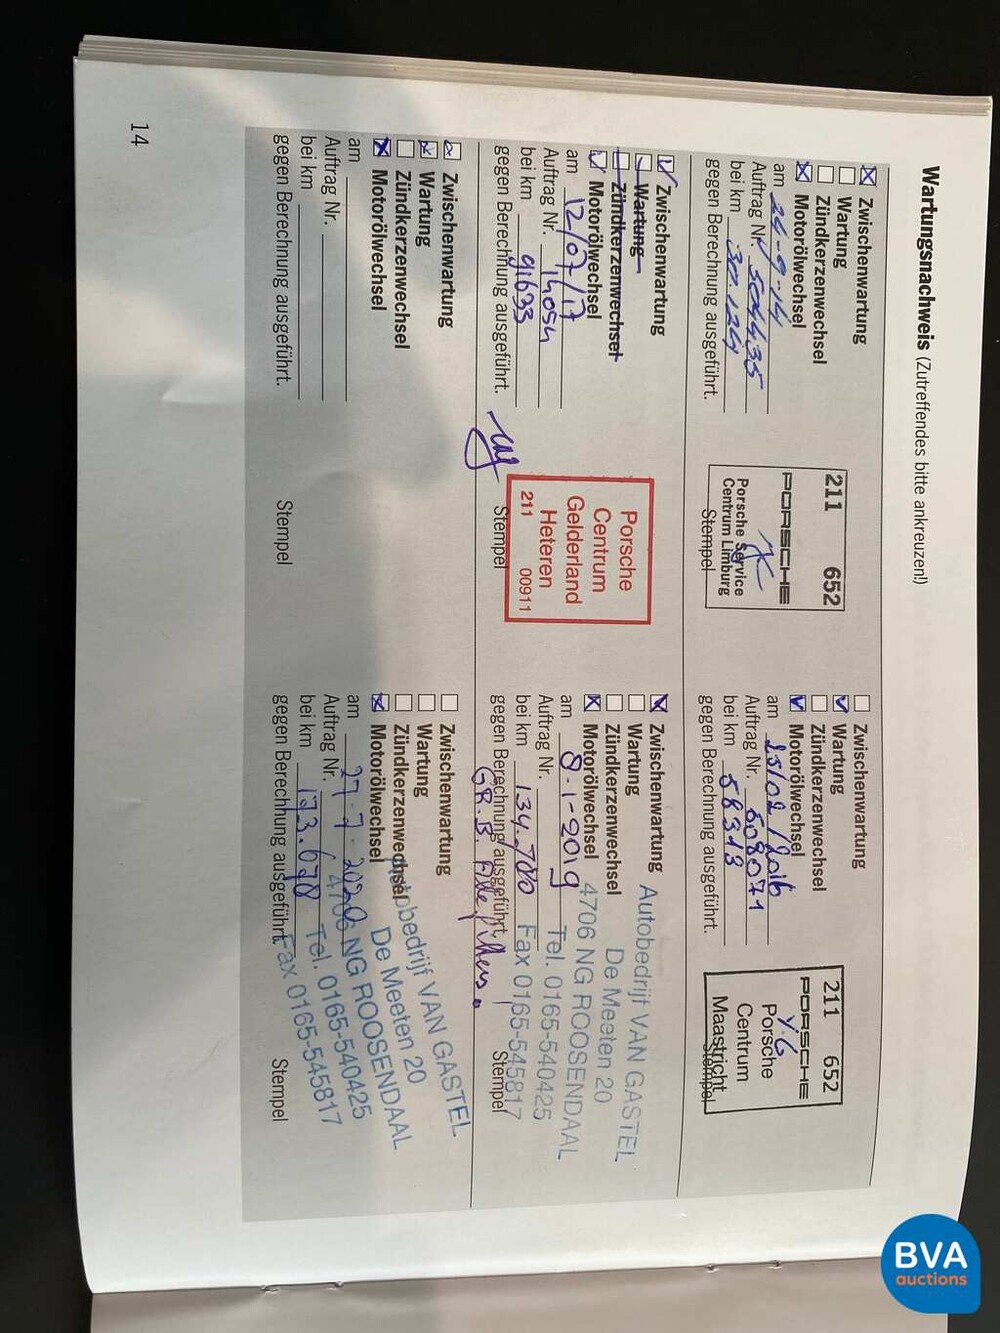 Wartungsnachweis (Zutreffendes bitte ankreuzen!)
Zwischenwartung
Wartung
Zündkerzenwechsel
Motorölwechsel
am 24-9-14
Auftrag Nr. 504435
bei km 30.124
gegen Berechnung ausgeführt.
211 652
PORSCHE
Porsche Service
Centrum Limburg
Stempel
Zwischenwartung
Wartung
Zündkerzenwechsel
Motorölwechsel
am 25/02/2016
Auftrag Nr. 608071
bei km 58313
gegen Berechnung ausgeführt.
211 652
PORSCHE
Y.G
Porsche
Centrum
Maastricht
Stempel
Zwischenwartung
Wartung
Zündkerzenwechsel
Motorölwechsel
am 12/07/17
Auftrag Nr. 14054
bei km 91633
gegen Berechnung ausgeführt.
Porsche
Centrum
Gelderland
Heteren
211 00911
Stempel
Zwischenwartung
Wartung
Zündkerzenwechsel
Motorölwechsel
am 8-1-2019
Auftrag Nr.
bei km 134.700
gegen Berechnung ausgeführt.
GR. B.
Autobedrijf VAN GASTEL
De Meeten 20
4706 NG ROOSENDAAL
Tel. 0165-540425
Fax 0165-545817
Stempel
Zwischenwartung
Wartung
Zündkerzenwechsel
Motorölwechsel
am
Auftrag Nr.
bei km
gegen Berechnung ausgeführt.
Stempel
Zwischenwartung
Wartung
Zündkerzenwechsel
Motorölwechsel
am 27-7-2020
Auftrag Nr.
bei km 173.678
gegen Berechnung ausgeführt.
Autobedrijf VAN GASTEL
De Meeten 20
4706 NG ROOSENDAAL
Tel. 0165-540425
Fax 0165-545817
Stempel
14
BVA
auctions